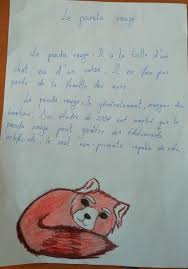 Le panda roux
Le panda rouge. Il a la taille d'un
chat ou d'un raton. Il ne fait pas
partie de la famille des ours.
Le panda rouge, généralement, mange du
bambou. Des études de 2009 ont montré que le
panda rouge peut goûter des édulcorants
artificiels, le seul non-primate capable de cela.